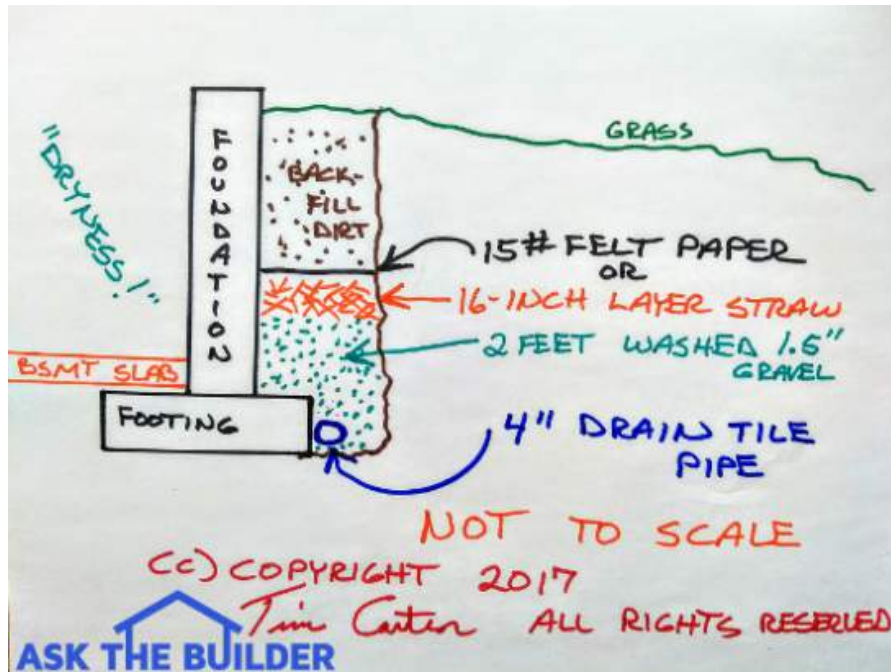 GRASS
FOUNDATION
BACK-
FILL
DIRT
"DRYNESS!"
15# FELT PAPER
OR
16-INCH LAYER STRAW
2 FEET WASHED 1.5"
GRAVEL
BSMT SLAB
FOOTING
4" DRAIN TILE
PIPE
NOT TO SCALE
(c) COPYRIGHT 2017
Tim Carter ALL RIGHTS RESERVED
ASK THE BUILDER